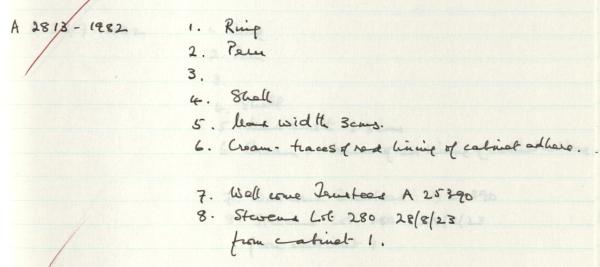 A 2813-1982 1. Ring
2. Peru
3.
4. Shell
5. Max width 3cms.
6. Cream - traces of red lining of cabinet adhere.
7. Wellcome Trustees A 25390
8. Stevens Lot 280 28/8/23
from cabinet 1.